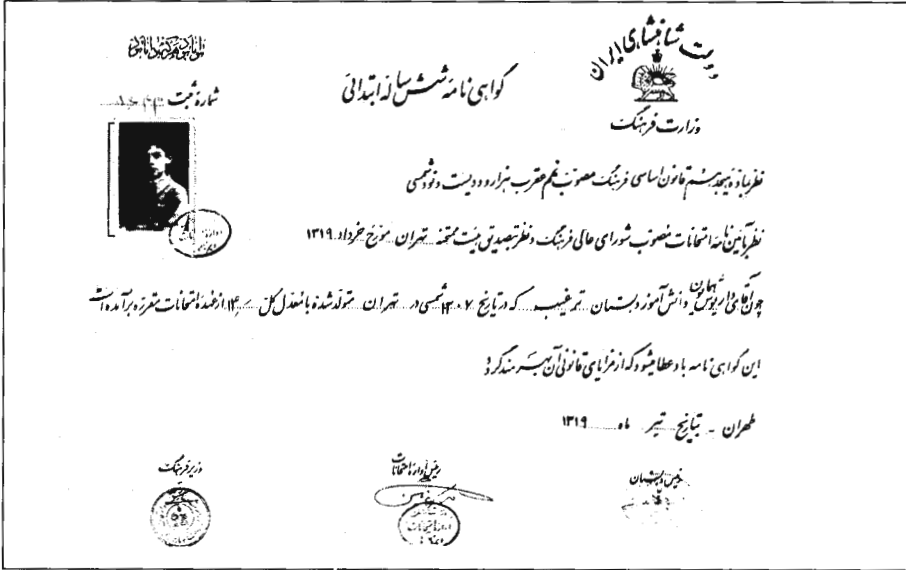 دولت شاهنشاهی ایران
وزارت فرهنگ
گواهی نامه شش ساله ابتدائی
شماره ثبت
نظر بماده هیجدهم قانون اساسی فرهنگ مصوب نهم عقرب هزار و دویست و نود شمسی
نظر بآئین نامه امتحانات مصوب شورای عالی فرهنگ و نظر بتصدیق هیئت ممتحنه تهران مورخ خرداد ۱۳۱۹
چون آقای داریوش همایون دانش آموز دبستان ترغیب که در تاریخ ۱۳۰۷ شمسی در تهران متولد شده با معدل کل از عهده امتحانات مقرره برآمده است
این گواهی نامه باو عطا میشود که از مزایای قانونی آن بهره مند گردد
طهران - بتاریخ تیر ماه ۱۳۱۹
رئیس دبستان
رئیس اداره امتحانات
وزیر فرهنگ